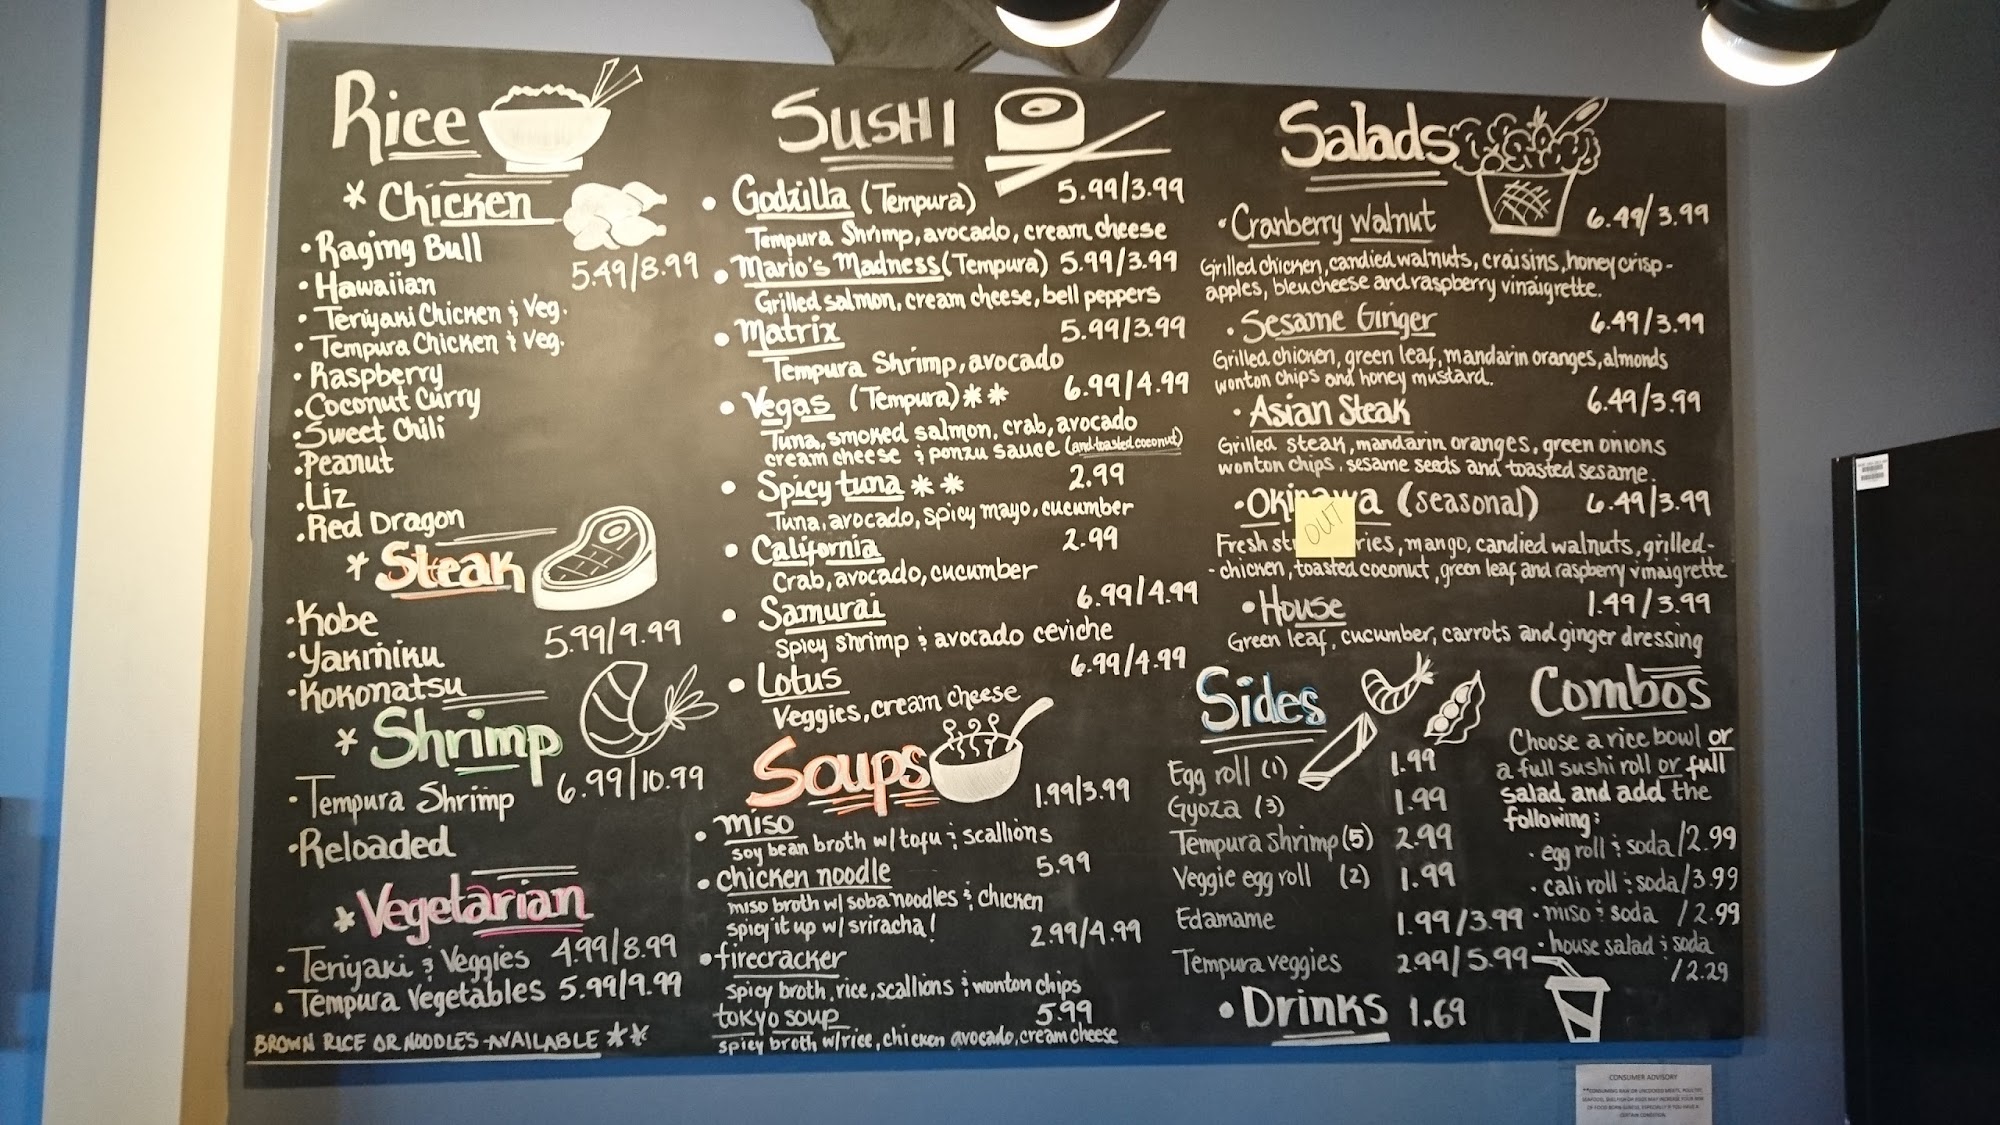 Rice
* Chicken
• Raging Bull
5.49/8.99
• Hawaiian
• Teriyaki Chicken & Veg.
• Tempura Chicken & Veg.
• Raspberry
• Coconut Curry
• Sweet Chili
• Peanut
• Liz
• Red Dragon
* Steak
• Kobe
5.99/9.99
• Yakiniku
• Kokonatsu
* Shrimp
• Tempura Shrimp 6.99/10.99
• Reloaded
* Vegetarian
• Teriyaki & Veggies 4.99/8.99
• Tempura Vegetables 5.99/9.99
BROWN RICE OR NOODLES - AVAILABLE **
SUSHI
• Godzilla (Tempura) 5.99/3.99
Tempura Shrimp, avocado, cream cheese
• Mario's Madness (Tempura) 5.99/3.99
Grilled salmon, cream cheese, bell peppers
• Matrix 5.99/3.99
Tempura Shrimp, avocado
• Vegas (Tempura) ** 6.99/4.99
Tuna, smoked salmon, crab, avocado
cream cheese & ponzu sauce (and toasted coconut)
• Spicy tuna ** 2.99
Tuna, avocado, spicy mayo, cucumber
• California 2.99
Crab, avocado, cucumber
• Samurai 6.99/4.99
Spicy shrimp & avocado ceviche
• Lotus 6.99/4.99
Veggies, cream cheese
Soups
• miso 1.99/3.99
soy bean broth w/ tofu & scallions
• chicken noodle 5.99
miso broth w/ soba noodles & chicken
spicy it up w/ sriracha!
• firecracker 2.99/4.99
spicy broth, rice, scallions & wonton chips
tokyo soup 5.99
spicy broth w/ rice, chicken avocado, cream cheese
Salads
• Cranberry Walnut 6.49/3.99
Grilled chicken, candied walnuts, craisins, honey crisp-
apples, bleu cheese and raspberry vinaigrette.
• Sesame Ginger 6.49/3.99
Grilled chicken, green leaf, mandarin oranges, almonds
wonton chips and honey mustard.
• Asian Steak 6.49/3.99
Grilled steak, mandarin oranges, green onions
wonton chips, sesame seeds and toasted sesame.
• Okinawa (seasonal) 6.49/3.99
OUT
Fresh st ries, mango, candied walnuts, grilled-
- chicken, toasted coconut, green leaf and raspberry vinaigrette
• House 1.49/3.99
Green leaf, cucumber, carrots and ginger dressing
Sides
Egg roll (1) 1.99
Gyoza (3) 1.99
Tempura Shrimp (5) 2.99
Veggie egg roll (2) 1.99
Edamame 1.99/3.99
Tempura veggies 2.99/5.99
• Drinks 1.69
Combos
Choose a rice bowl or
a full sushi roll or full
salad and add the
following:
• egg roll & soda /2.99
• cali roll & soda /3.99
• miso & soda /2.99
• house salad & soda
/2.29
CONSUMER ADVISORY